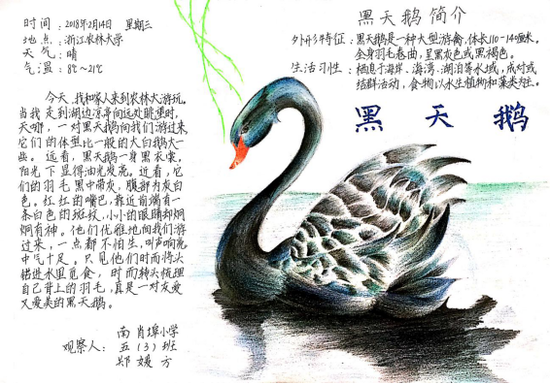 时间：2018年2月14日 星期三
地点：浙江农林大学
天气：晴
气温：8℃~21℃
今天，我和家人来到农林大游玩。
当我走到湖边凉亭向远处眺望时，
天哪，一对黑天鹅向我们游过来，
它们的体型比一般的大白鹅大一
些。远看，黑天鹅一身黑衣裳，
阳光下显得油光发亮。近看，它
们的羽毛黑中带灰，腹部为灰白
色。红红的嘴巴，靠近前端有一
条白色的斑纹，小小的眼睛却炯
炯有神。他们优雅地向我们游
过来，一点都不怕生，叫声响亮
中气十足。只见他们时而将头
潜进水里觅食，时而转头梳理
自己背上的羽毛，真是一对友爱
又爱美的黑天鹅。
南肖埠小学
观察人：五（3）班
郑媛方
黑天鹅简介
外形特征：黑天鹅是一种大型游禽，体长110-140厘米，
全身羽毛卷曲，呈黑灰色或黑褐色。
生活习性：栖息于海岸、海湾、湖泊等水域，成对或
结群活动，食物以水生植物和藻类为主。
黑天鹅